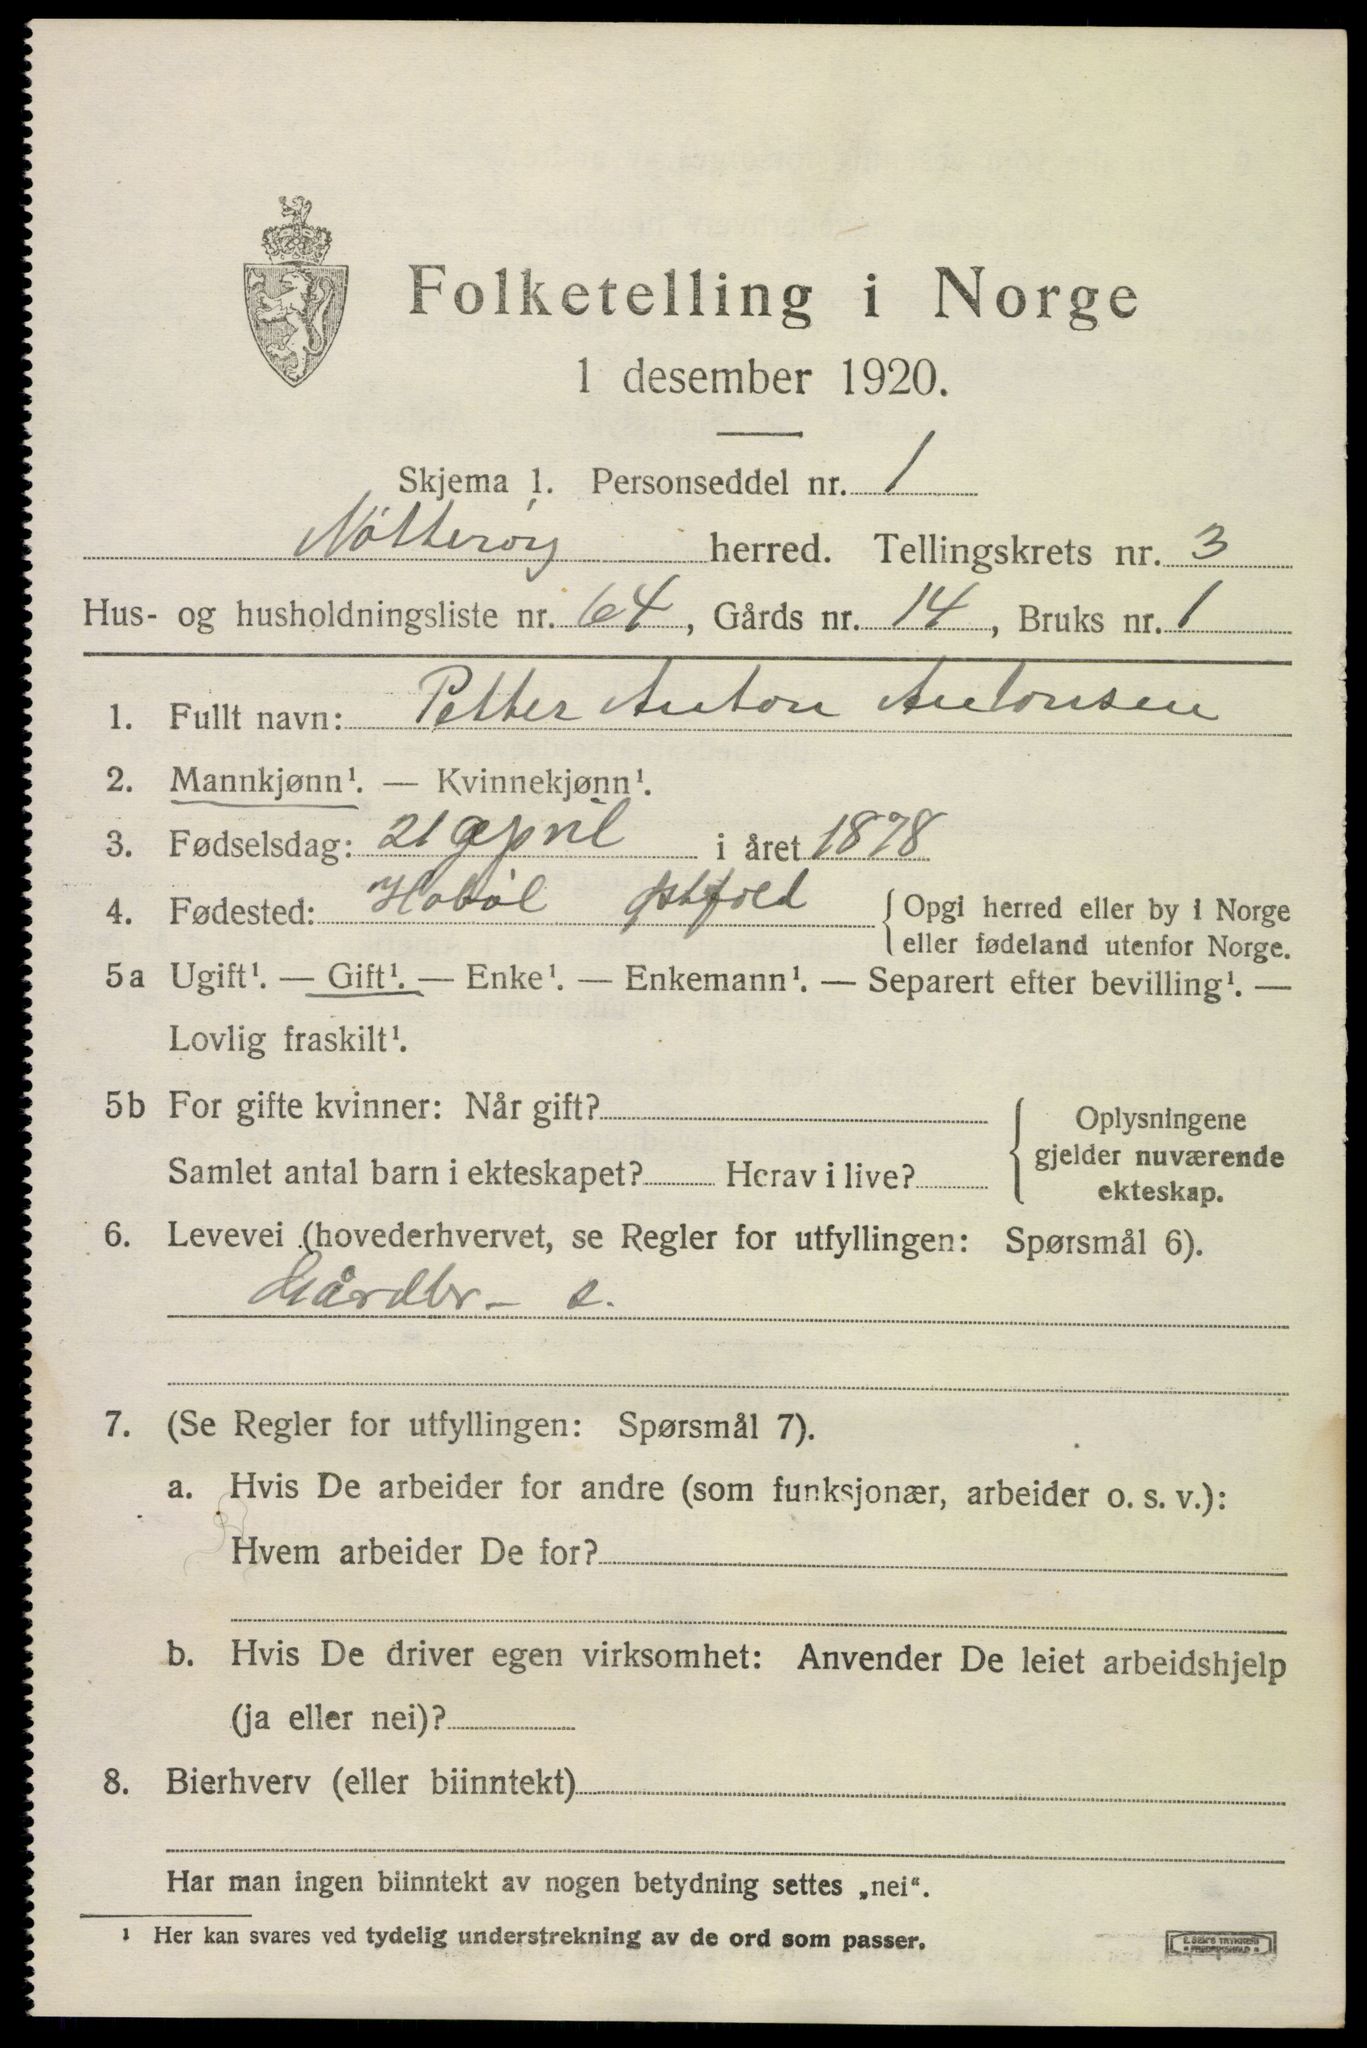 Folketelling i Norge
1 desember 1920.
Skjema 1. Personseddel nr. 1
Nötterøy herred. Tellingskrets nr. 3
Hus- og husholdningsliste nr. 64, Gårds nr. 14, Bruks nr. 1
1. Fullt navn: Petter Anton Antonsen
2. Mannkjønn¹. — Kvinnekjønn¹.
3. Fødselsdag: 21 april i året 1878
4. Fødested: Hobøl Østfold { Opgi herred eller by i Norge
eller fødeland utenfor Norge.
5a Ugift¹. — Gift¹. — Enke¹. — Enkemann¹. — Separert efter bevilling¹. —
Lovlig fraskilt¹.
5b For gifte kvinner: Når gift? { Oplysningene
gjelder nuværende
Samlet antal barn i ekteskapet? Herav i live?
ekteskap.
6. Levevei (hovederhvervet, se Regler for utfyllingen: Spørsmål 6).
Gårdbr - s.
7. (Se Regler for utfyllingen: Spørsmål 7).
a. Hvis De arbeider for andre (som funksjonær, arbeider o. s. v.):
Hvem arbeider De for?
b. Hvis De driver egen virksomhet: Anvender De leiet arbeidshjelp
(ja eller nei)?
8. Bierhverv (eller biinntekt)
Har man ingen biinntekt av nogen betydning settes „nei“.
¹ Her kan svares ved tydelig understrekning av de ord som passer.
E. SEM'S TRYKKERI
FREDRIKSHALD